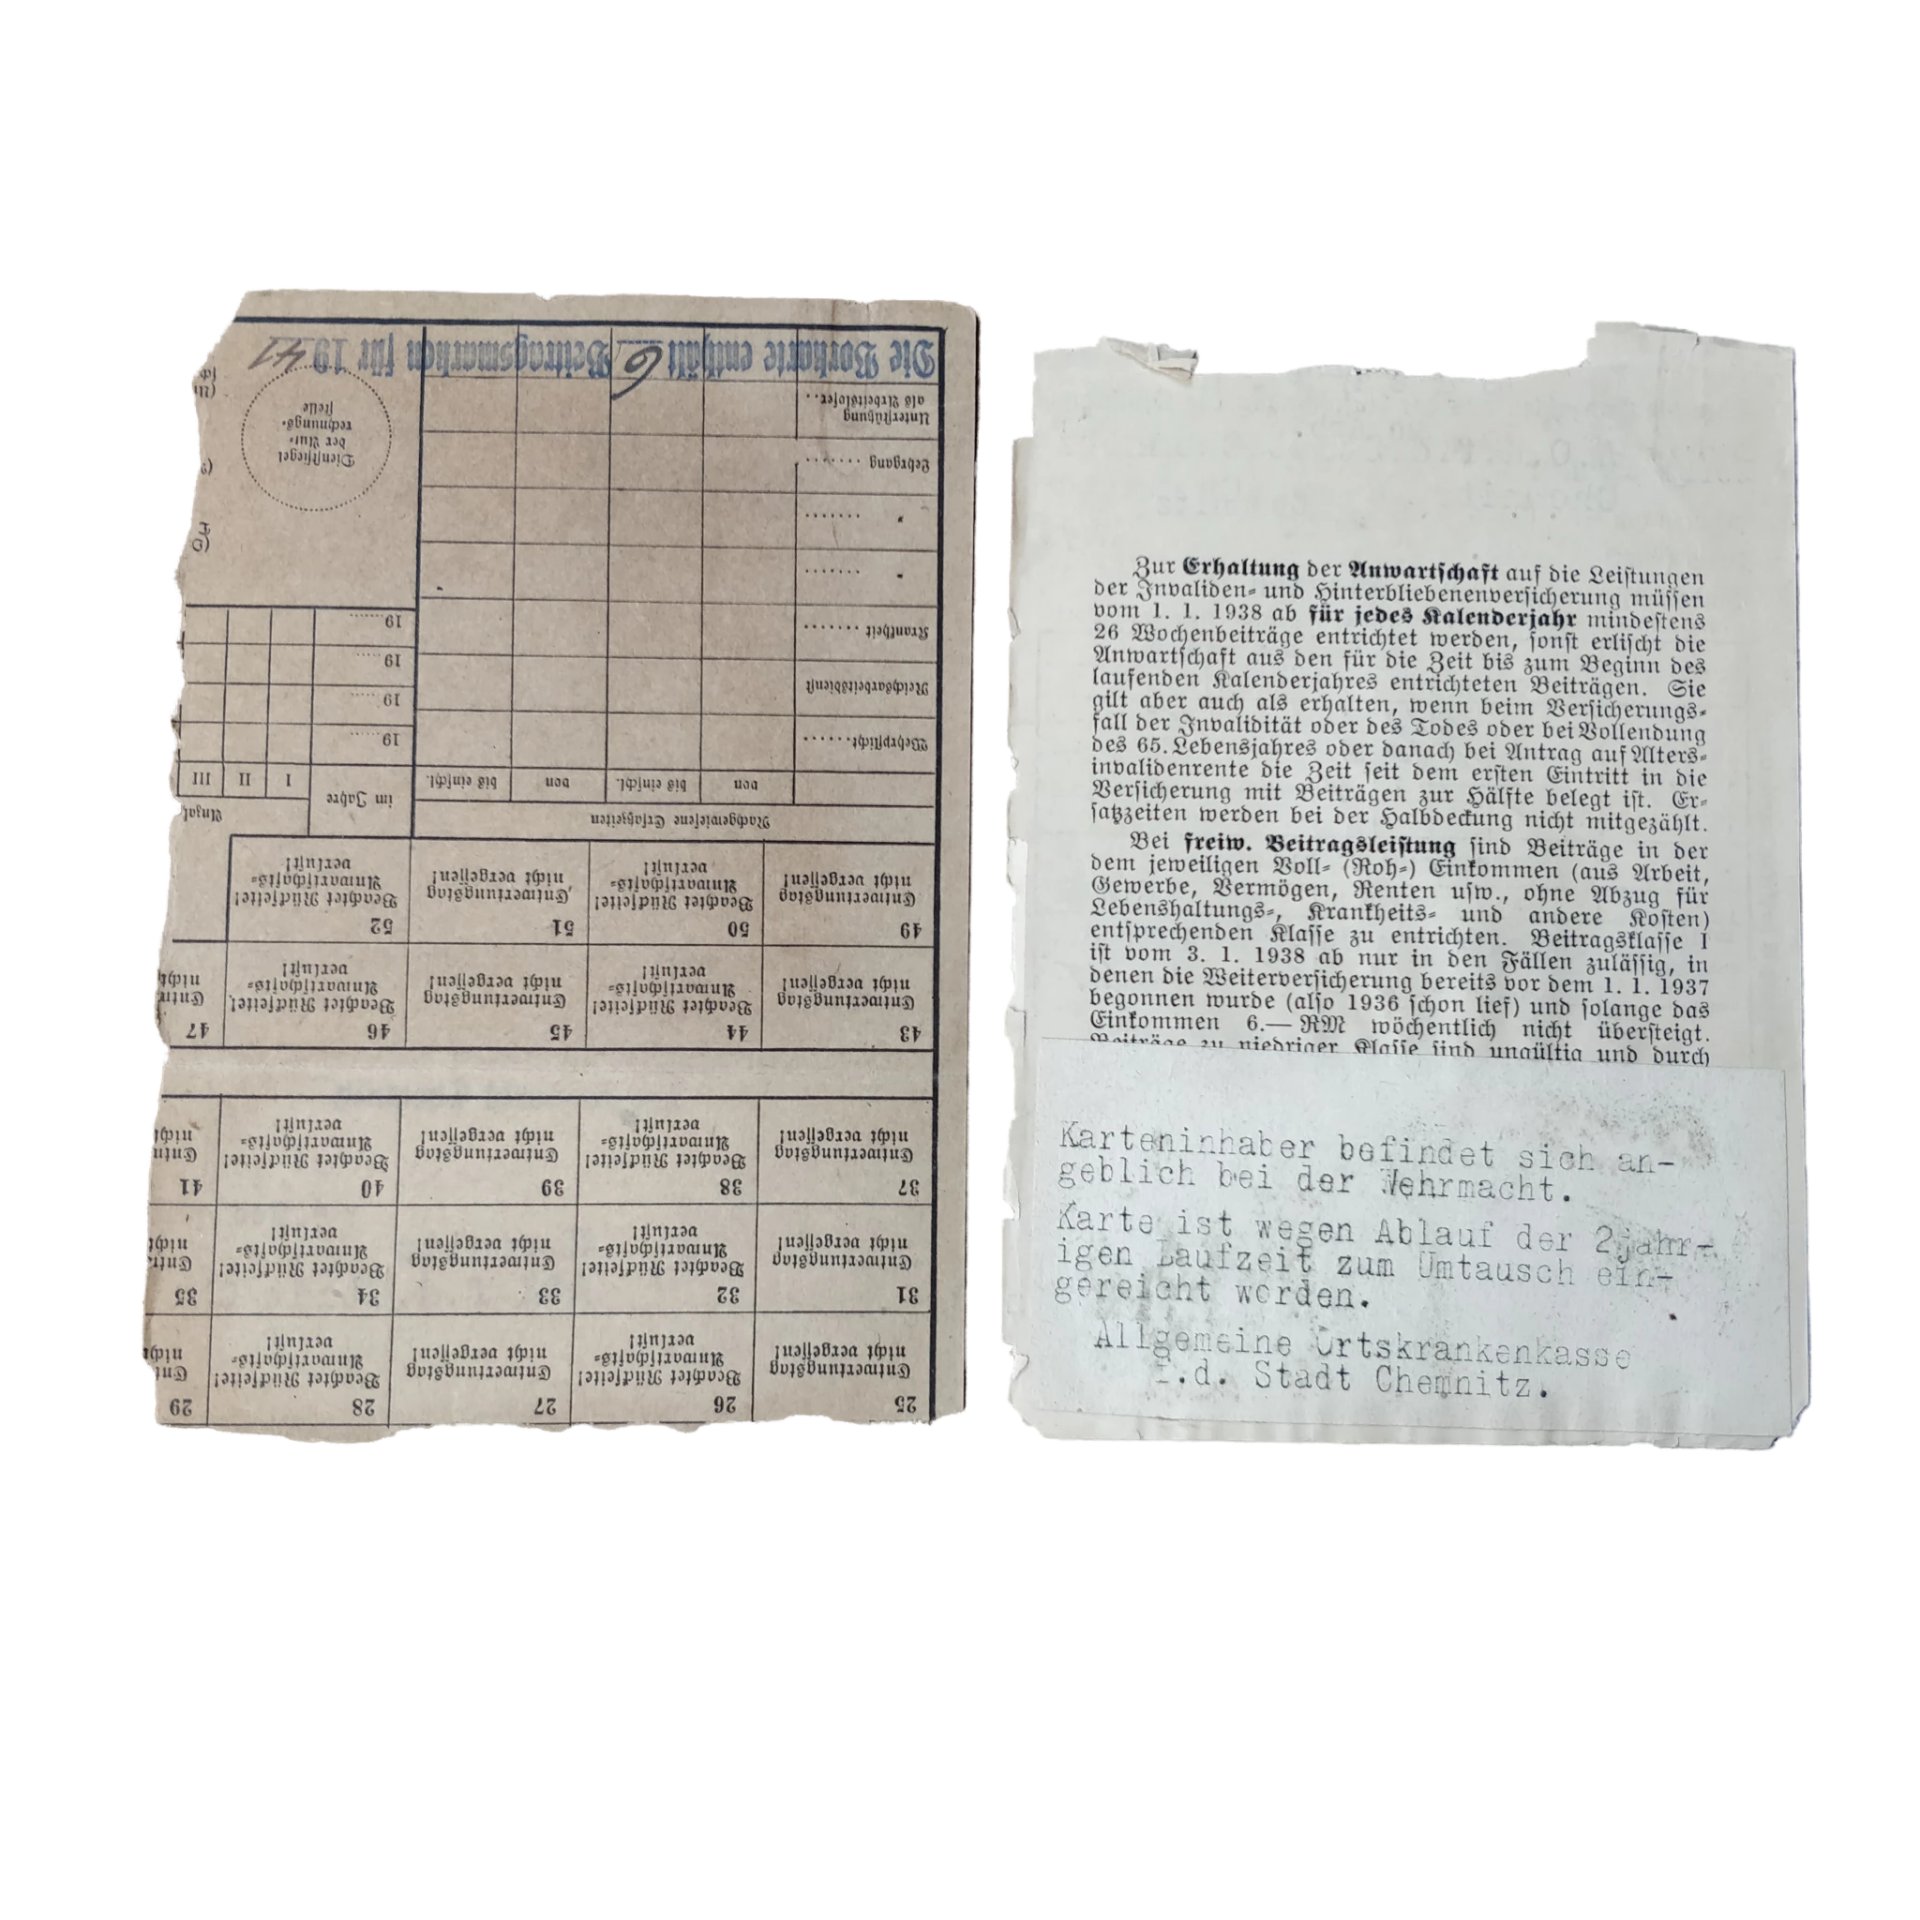 25
Entwertungstag
nicht vergessen!
26
Beachtet Rückseite!
Anwartschafts-
verlust!
27
Entwertungstag
nicht vergessen!
28
Beachtet Rückseite!
Anwartschafts-
verlust!
29
Ent
nicht
31
Entwertungstag
nicht vergessen!
32
Beachtet Rückseite!
Anwartschafts-
verlust!
33
Entwertungstag
nicht vergessen!
34
Beachtet Rückseite!
Anwartschafts-
verlust!
35
Entw
nicht
37
Entwertungstag
nicht vergessen!
38
Beachtet Rückseite!
Anwartschafts-
verlust!
39
Entwertungstag
nicht vergessen!
40
Beachtet Rückseite!
Anwartschafts-
verlust!
41
Entw
nicht
43
Entwertungstag
nicht vergessen!
44
Beachtet Rückseite!
Anwartschafts-
verlust!
45
Entwertungstag
nicht vergessen!
46
Beachtet Rückseite!
Anwartschafts-
verlust!
47
Entw
nicht
49
Entwertungstag
nicht vergessen!
50
Beachtet Rückseite!
Anwartschafts-
verlust!
51
Entwertungstag
nicht vergessen!
52
Beachtet Rückseite!
Anwartschafts-
verlust!
Nachgewiesene Ersatzzeiten
von bis einschl. von bis einschl.
im Jahre
Anzahl
I II III
Wehrpflicht......
Reichsarbeitsdienst
Krankheit .......
" .......
" .......
Lehrgang .......
Unterstützung
als Arbeitsloser..
19......
19......
19......
19......
Dienstsiegel
der Auf-
rechnungs-
stelle
Die Vorkarte enthält 6 Beitragsmarken für 19 41
Zur Erhaltung der Anwartschaft auf die Leistungen
der Invaliden- und Hinterbliebenenversicherung müssen
vom 1. 1. 1938 ab für jedes Kalenderjahr mindestens
26 Wochenbeiträge entrichtet werden, sonst erlischt die
Anwartschaft aus den für die Zeit bis zum Beginn des
laufenden Kalenderjahres entrichteten Beiträgen. Sie
gilt aber auch als erhalten, wenn beim Versicherungs-
fall der Invalidität oder des Todes oder bei Vollendung
des 65. Lebensjahres oder danach bei Antrag auf Alters-
invalidenrente die Zeit seit dem ersten Eintritt in die
Versicherung mit Beiträgen zur Hälfte belegt ist. Er-
satzzeiten werden bei der Halbdeckung nicht mitgezählt.
Bei freiw. Beitragsleistung sind Beiträge in der
dem jeweiligen Voll- (Roh-) Einkommen (aus Arbeit,
Gewerbe, Vermögen, Renten usw., ohne Abzug für
Lebenshaltungs-, Krankheits- und andere Kosten)
entsprechenden Klasse zu entrichten. Beitragsklasse I
ist vom 3. 1. 1938 ab nur in den Fällen zulässig, in
denen die Weiterversicherung bereits vor dem 1. 1. 1937
begonnen wurde (also 1936 schon lief) und solange das
Einkommen 6.— RM wöchentlich nicht übersteigt.
Beiträge zu niedriger Klasse sind ungültig und durch
Karteninhaber befindet sich an-
geblich bei der Wehrmacht.
Karte ist wegen Ablauf der 2jahr-
igen Laufzeit zum Umtausch ein-
gereicht worden.
Allgemeine Ortskrankenkasse
f.d. Stadt Chemnitz.